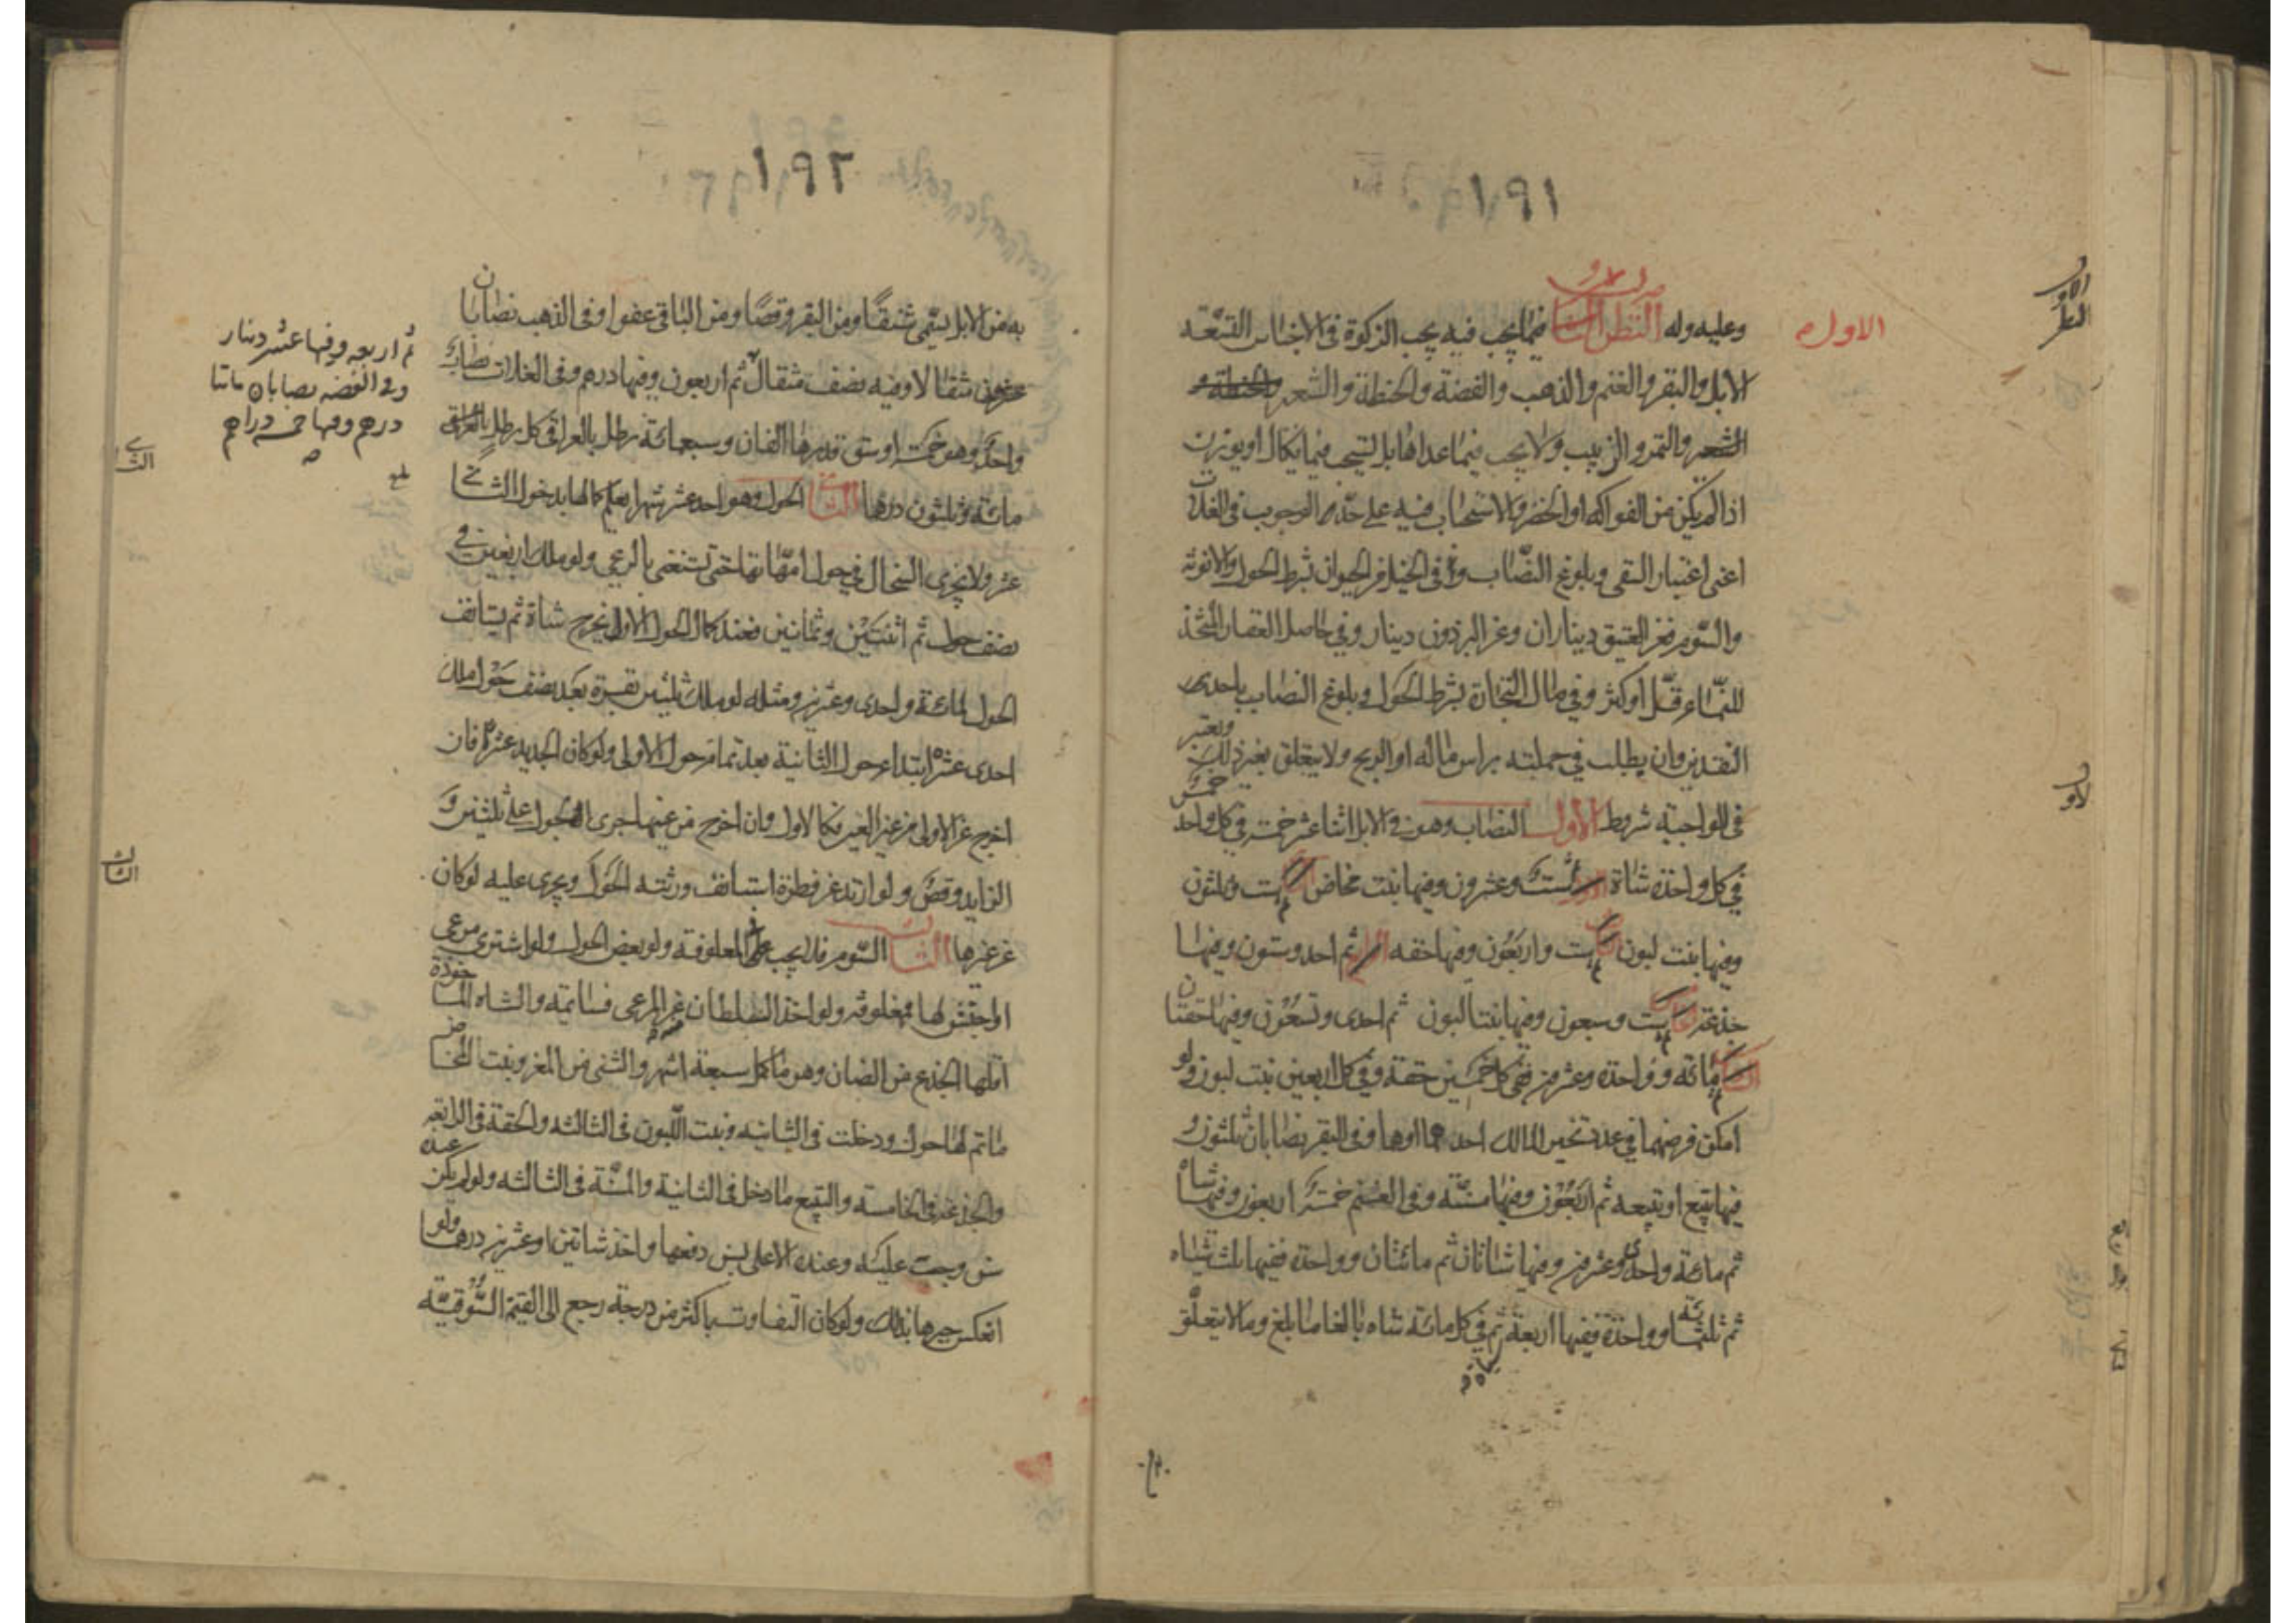 ١٩١
الاول
وعليه وله النظر الاول فيما يجب فيه يجب الزكوة في الاجناس التسعة
الابل والبقر والغنم والذهب والفضة والحنطة والشعير والحنطة و
الشعير والتمر والزبيب ولا يجب فيما عداها بل يستحب فيما يكال او يوزن
اذا لم يكن من الفواكه او الخضر والاستحباب فيه على حد الوجوب في الغلات
اعني اعتبار السقي وبلوغ النصاب وفي الخيل من الحيوان بشرط الحول والانوثة
والسوم فعن العتيق ديناران وعن البرذون دينار وفي حاصل العقار المتخذ
للنماء قل او كثر وفي مال التجارة بشرط الحول وبلوغ النصاب باحدى
النقدين وان يطلب في جملته براس ماله او الربح ولا يتعلق بغير ذلك ويعتبر
في الواجبة شروط الاول النصاب وهو في الابل اثنا عشر خمسة في كل واحد
في كل واحدة شاة ثم ست وعشرون وفيها بنت مخاض ثم ست وثلثون
وفيها بنت لبون ثم ست واربعون وفيها حقه ثم احد وستون وفيها
جذعة ثم ست وسبعون وفيها بنتا لبون ثم احدى وتسعون وفيها حقتان
ثم مائة وواحدة وعشرون ففي كل خمسين حقة وفي كل اربعين بنت لبون ولو
امكن فرضهما في عدد تخير المالك احدهما اوهما وفي البقر نصابان ثلثون و
فيها تبيع او تبيعه ثم اربعون وفيها مسنة وفي الغنم خمسة اربعون وفيها شاة
ثم مائة واحدى وعشرون وفيها شاتان ثم مائتان وواحدة ففيها ثلث شياه
ثم ثلثمائة وواحدة ففيها اربعة ثم في كل مائة شاه بالغا ما بلغ وما لا يتعلق
١٩٢
به من الابل يسمى شنقا ومن البقر وقصا ومن الباقي عفوا وفي الذهب نصابان
عشرون مثقالا وفيه نصف مثقال ثم اربعون وفيها درهم وفي الغلات نصاب
واحد وهو خمسة اوسق قدرها الفان وسبعمائة رطل بالعراقي كل رطل بالعراقي
مائة وثلثون درهما الثاني الحول وهو احد عشر شهرا يعلم كمالها بدخول الثاني
عشر ولا يجزى السخال في حول امهاتها حتى تستغني بالرعي ولو ملك اربعين في
نصف حول ثم اثنتين وثمانين فعند كمال الحول الاول يخرج شاة ثم يستانف
الحول لمائة واحدى وعشرين ومثله لو ملك ثلثين بقرة بعد نصف حول ملك
احدى عشرة ابتداء حول الثانية بعد تمام حول الاولى ولو كان الجديد عشرة فان
اخرج عن الاولى من غير العين فكالاول وان اخرج من عينها جرى الحول على ثلثين و
الزايد وقص ولو ارتد عن فطرة استانف ورثته الحول ويجرى عليه لو كان
عن غيرها الثالث السوم فلا يجب على المعلوفة ولو بعض الحول ولو اشترى مرعى
فمعلوفة ولو اخذ السلطان عن المرعى فسائمة والشاه الماخوذة
اقلها الجذع من الضان وهو ما كمل سبعة اشهر والثني من المعز وبنت المخاض
ما تم لها حول ودخلت في الثانيه وبنت اللبون في الثالثه والحقة في الرابعه
والجذعة في الخامسه والتبيع ما دخل في الثانية والمسنة في الثالثه ولو لم يكن عنده
سن وجبت عليه وعنده الاعلى بسن دفعها واخذ شاتين او عشرين درهما ولو
انعكس جبرها بذلك ولو كان التفاوت باكثر من درجة رجع الى القيمة السوقية
ثم اربعه وفيها عشر دينار
وفي الفضه نصابان مائتا
درهم وفيها خمسه دراهم
الثاني
الثالث